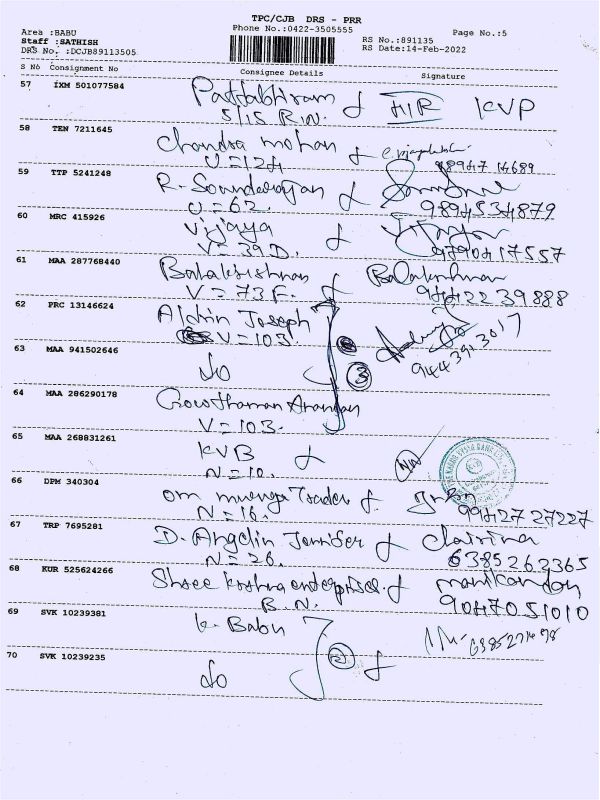 TPC/CJB DRS - PRR
Phone No.:0422-3505555
Area :BABU
Staff :SATHISH
DRS No. :DCJB89113505
RS No.:891135 Page No.:5
RS Date:14-Feb-2022
S No Consignment No Consignee Details Signature
57 IXM 501077584 Pattabhiram HR KVP
5/15 R.N.
58 TEN 7211645 Chandra mohan
V=124 98947 14689
59 TTP 5241248 R. Soundarrajan
V=62. 9894534879
60 MRC 415926 Vijaya
V=39D. 9790417557
61 MAA 287768440 Balakrishnan Balakrishnan
V=73F. 94422 39888
62 PRC 13146624 Aldrin Joseph
V=103. 944393017
63 MAA 941502646 do 3
64 MAA 286290178 Gowthaman Arangan
V=103.
65 MAA 268831261 KVB
N=10.
66 DPM 340304 Om muruga Trader
N=16. 99427 27227
67 TRP 7695281 D. Angelin Jennifer
N=26. 6385262365
68 KUR 525624266 Shree krishna enterprises manikandan
B.N. 9047051010
69 SVK 10239381 K. Babu
2
70 SVK 10239235 do